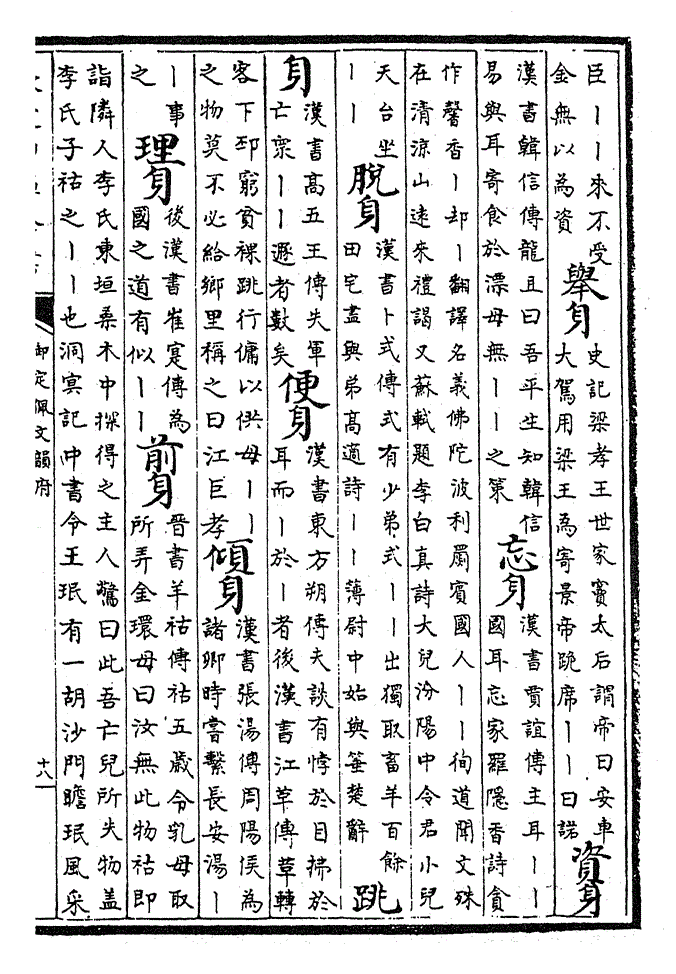 臣｜｜來不受
金無以為資
舉身
史記梁孝王世家竇太后謂帝曰安車
大駕用梁王為寄景帝跪席｜｜曰諾
資身
漢書韓信傳龍且曰吾平生知韓信
易與耳寄食於漂母無｜｜之策
忘身
漢書賈誼傳主耳｜｜
國耳忘家羅隱香詩貪
作馨香｜却｜翻譯名義佛陀波利罽賓國人｜｜徇道聞文殊
在清涼山遠來禮謁又蘇軾題李白真詩大兒汾陽中令君小兒
天台坐
｜｜
脫身
漢書卜式傳式有少弟式｜｜出獨取畜羊百餘
田宅盡與弟高適詩｜｜簿尉中始與箠楚辭
跳
身
漢書高五王傳失軍
亡衆｜｜遯者數矣
便身
漢書東方朔傳夫談有悖於目拂於
耳而｜於｜者後漢書江革傳革轉
客下邳窮貧裸跣行傭以供母｜｜
之物莫不必給鄉里稱之曰江巨孝
傾身
漢書張湯傳周陽侯為
諸卿時嘗繫長安湯｜
｜事
之
理身
後漢書崔寔傳為
國之道有似｜｜
前身
晉書羊祜傳祜五歲令乳母取
所弄金環母曰汝無此物祜即
詣隣人李氏東垣桑木中探得之主人驚曰此吾亡兒所失物葢
李氏子祜之｜｜也洞冥記中書令王珉有一胡沙門瞻珉風采
御定佩文韻府
十八